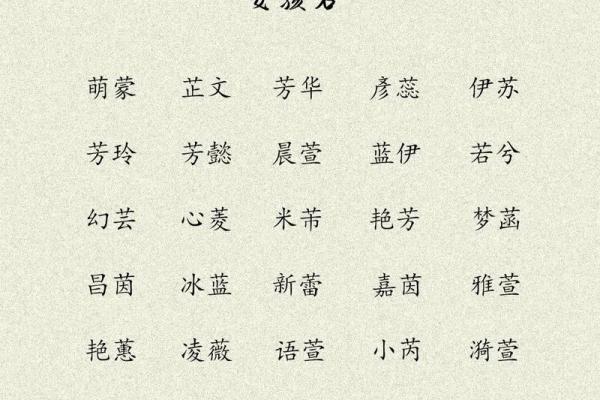 女孩名
萌蒙 芷文 芳华 彦蕊 伊苏
芳玲 芳懿 晨萱 蓝伊 若兮
幻芸 心菱 米芾 艳芳 梦菡
昌茵 冰蓝 新蕾 嘉茵 雅萱
艳蕙 凌薇 语萱 小芮 漪萱